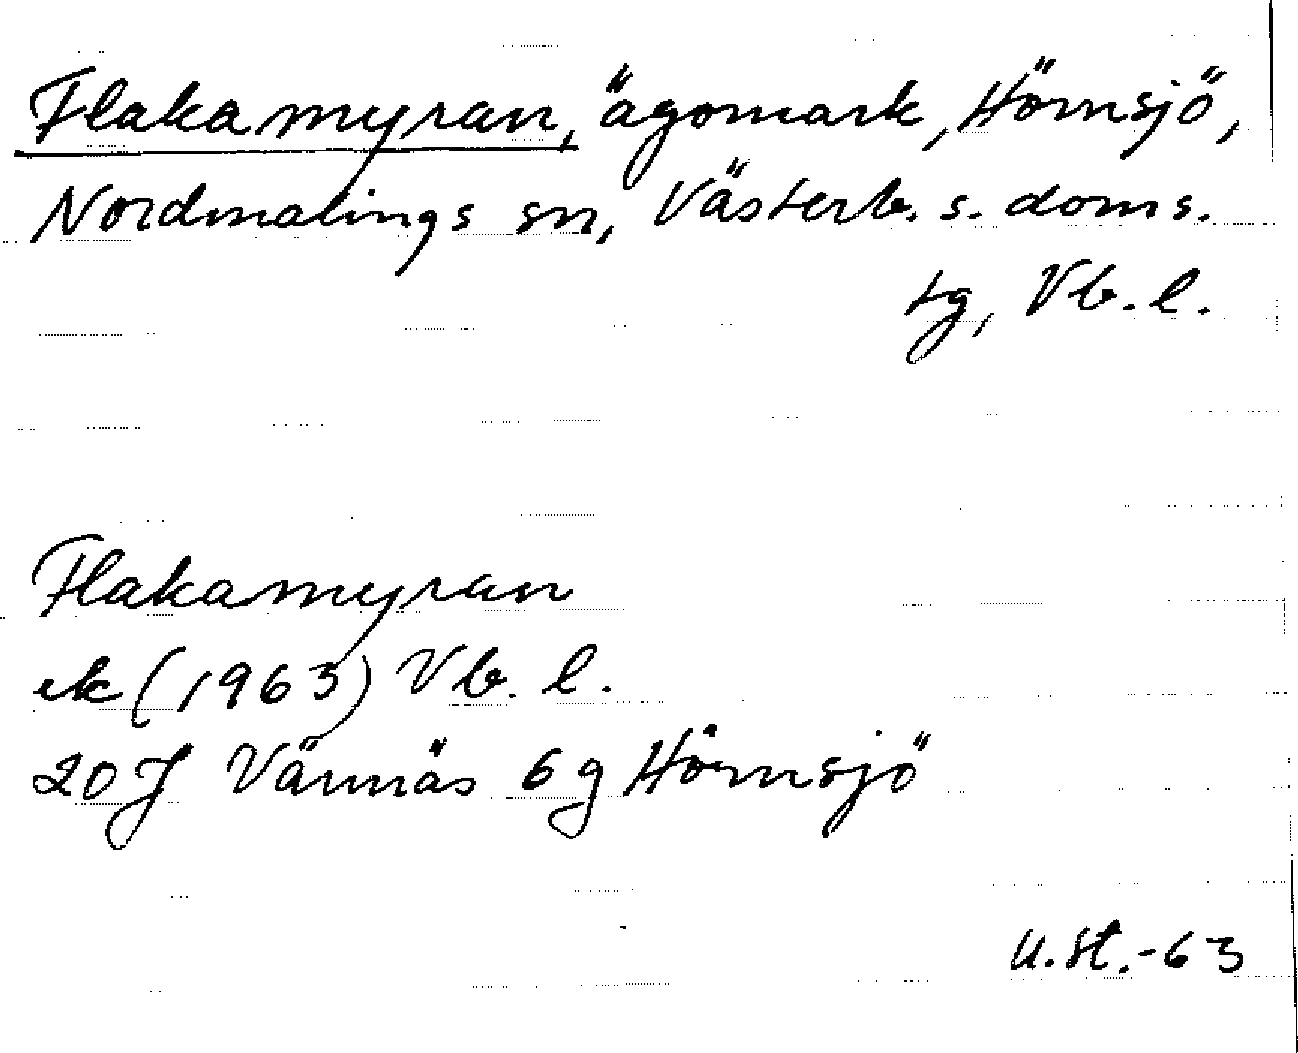 Flakamyran, ägomark, Hörnsjö,
Nordmalings sn, Västerb. s. doms.
tg, Vb. l.
Flakamyran
ek (1963) Vb. l.
20J Vännäs 6g Hörnsjö
U.St.-63